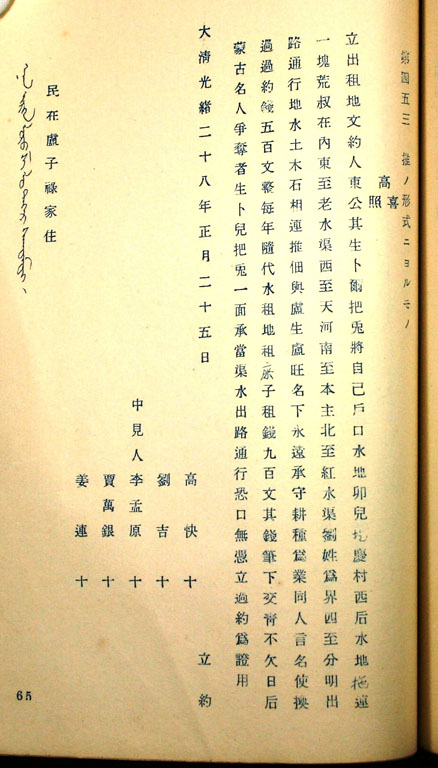 第四五三 推ノ形式ニヨルモノ
高喜
照
立出租地文約人東公其生卜爾把兎將自己戶口水地卯兒圪慶村西后水地拖連
一塊荒叔在內東至老水渠西至天河南至本主北至紅水渠劉姓爲界四至分明出
路通行地水土木石相連推佃與盧生盧旺名下永遠承守耕種爲業同人言名使換
過過約錢五百文整每年隨代水租地租 子租錢九百文其錢筆下交淸不欠日后
蒙古名人爭奪者生卜兒把兎一面承當渠水出路通行恐口無憑立過約爲證用
大淸光緖二十八年正月二十五日 立約
高快 十
劉吉 十
中見人 李孟原 十
賈萬銀 十
姜連 十
民在盧子祿家住
65